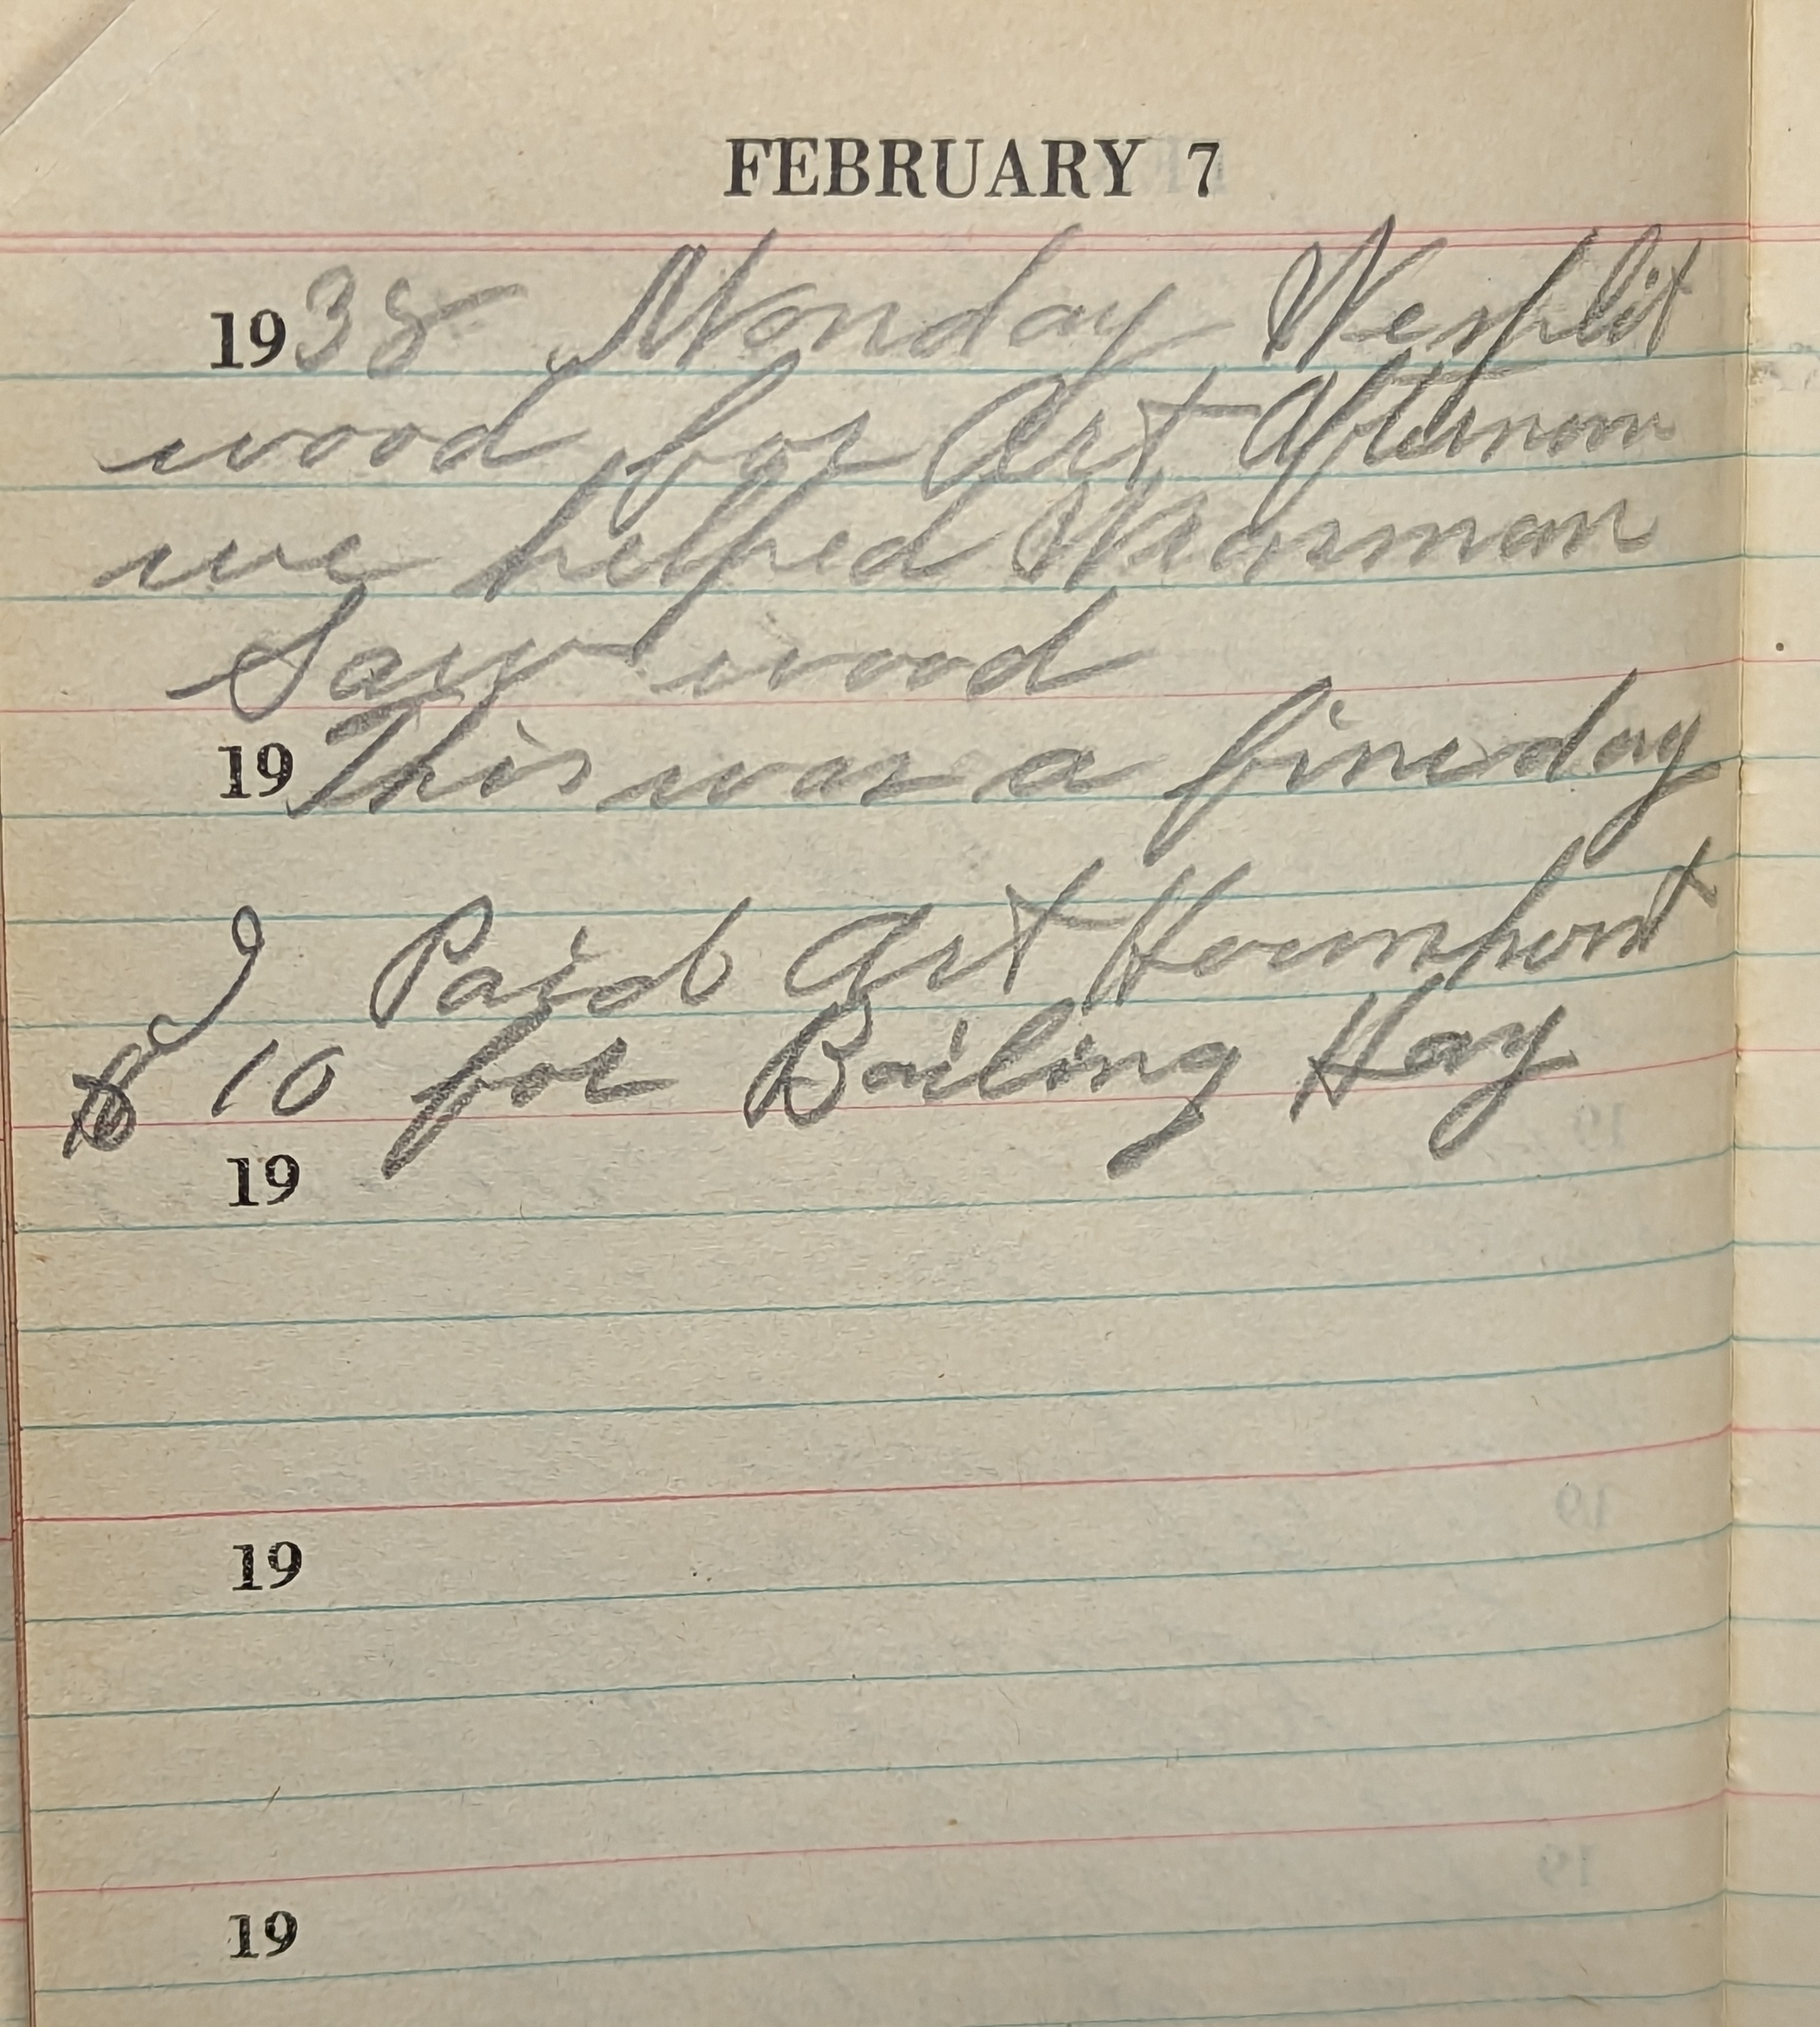 FEBRUARY 7
1938 Monday We split
wood for Art Afternoon
we helped Wearman
Saw wood
19 This was a fine day
I Paid Art
$ 10 for Bailing Hay
19
19
19